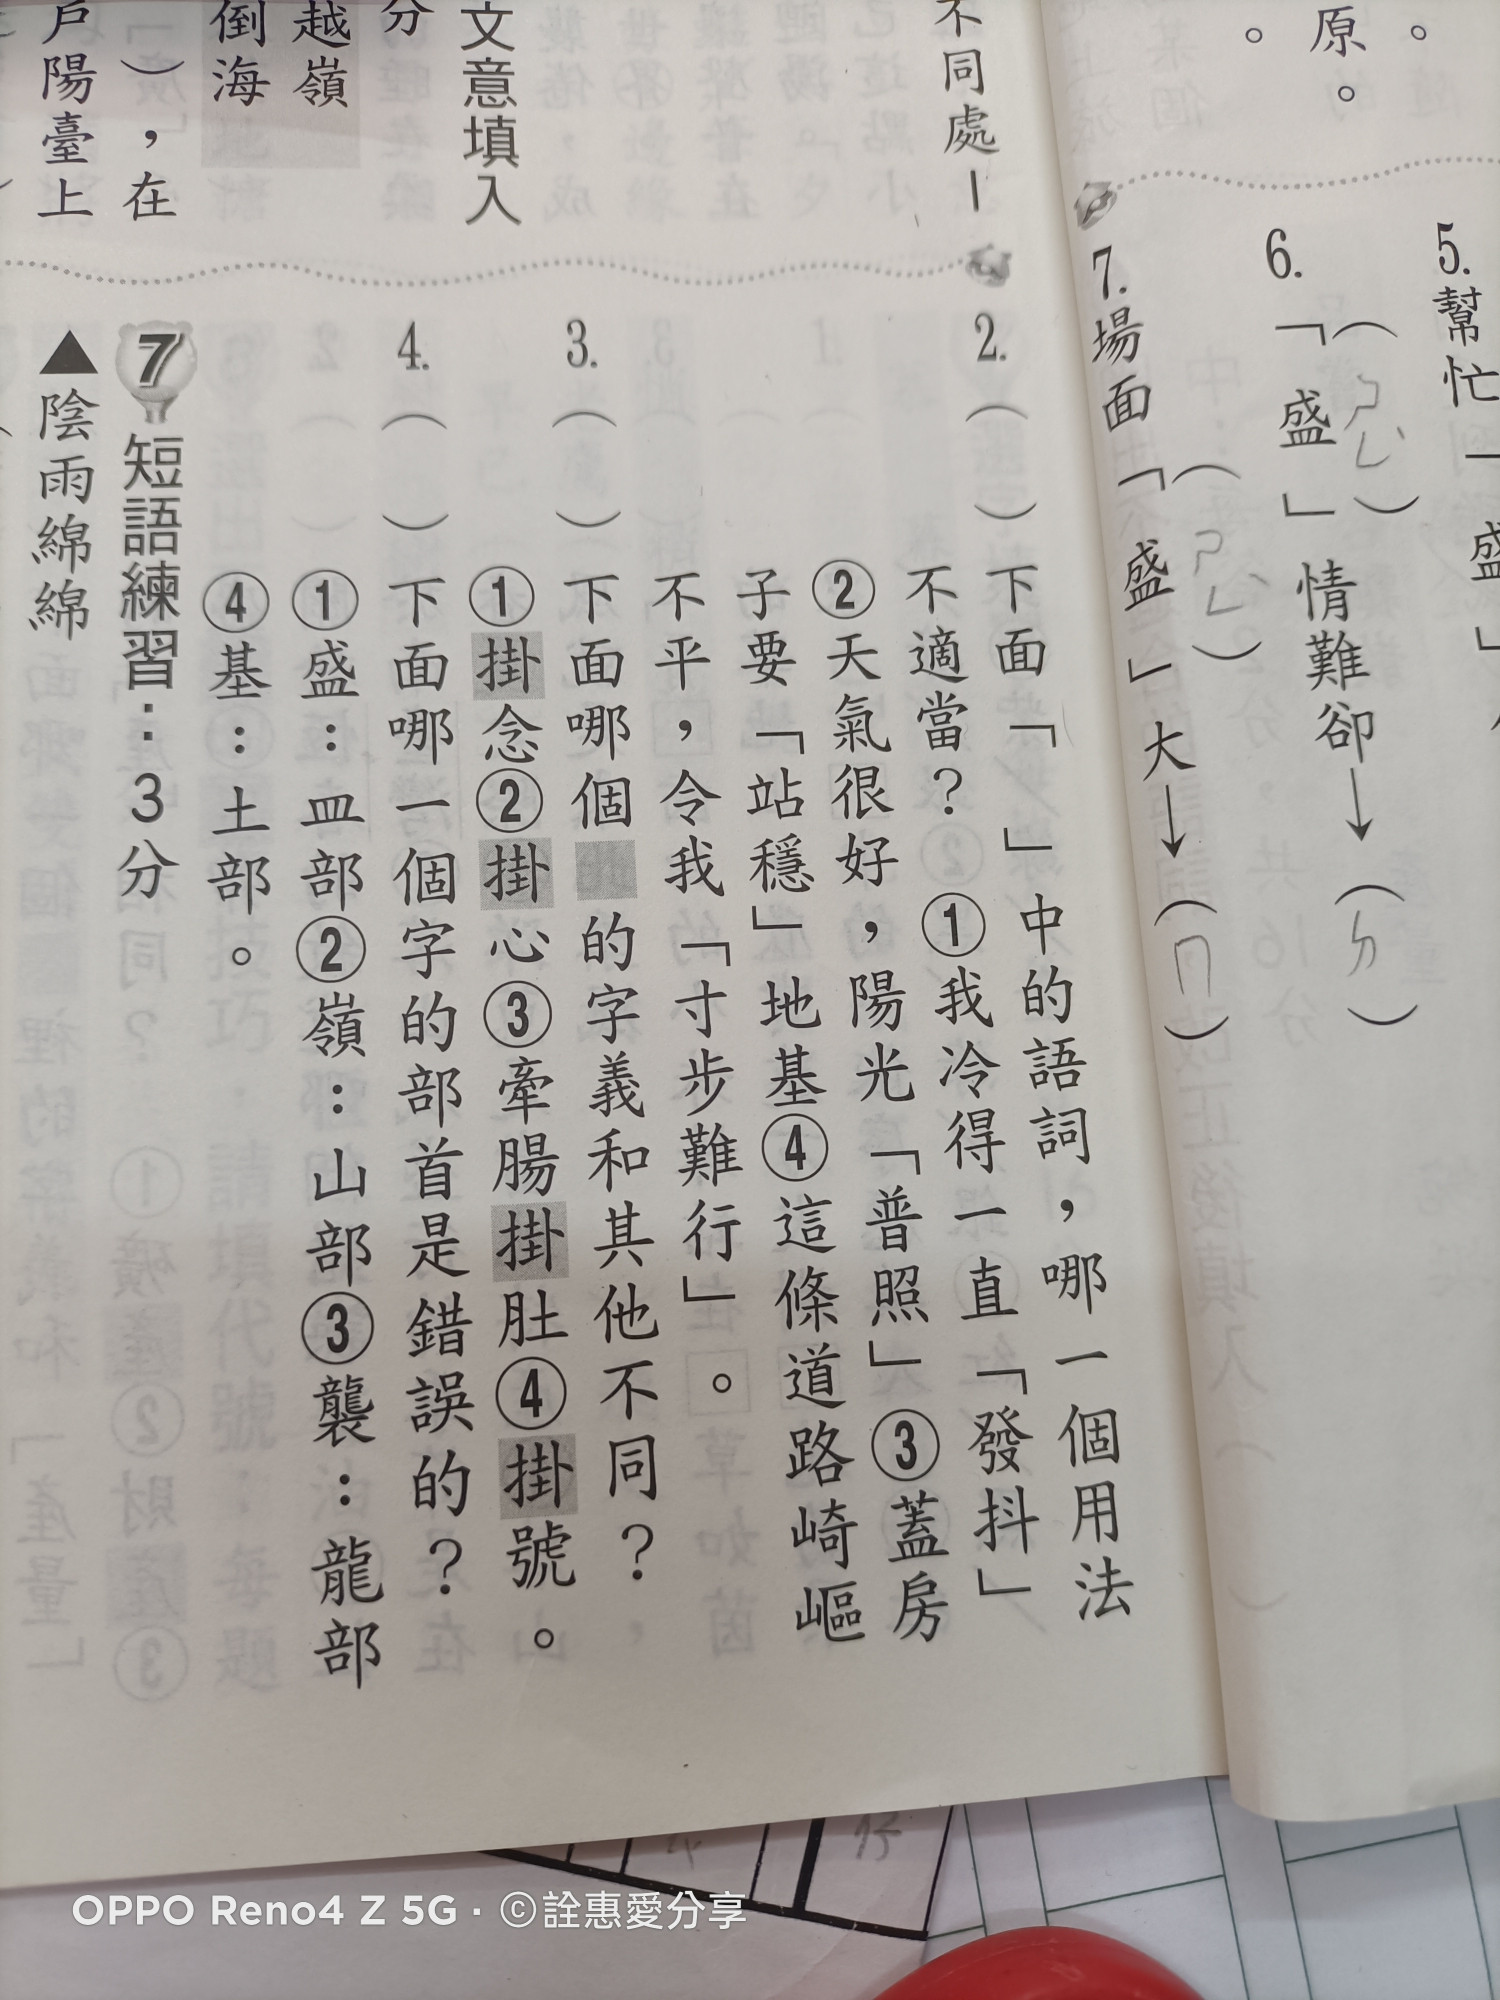 。
原。
5.幫忙「盛」
6.「盛」情難卻→(ㄉ)
(ㄕㄥˋ)
7.場面「盛」大→(ㄇ)
(ㄕㄥˋ)
不同處
文意填入
分
越嶺
倒海
),在
戶陽臺上
2.( )下面「 」中的語詞,哪一個用法
不適當?①我冷得一直「發抖」
②天氣很好,陽光「普照」③蓋房
子要「站穩」地基④這條道路崎嶇
不平,令我「寸步難行」。
3.( )下面哪個 的字義和其他不同?
①掛念②掛心③牽腸掛肚④掛號。
4.( )下面哪一個字的部首是錯誤的?
①盛:皿部②嶺:山部③襲:龍部
④基:土部。
7短語練習:3分
▲陰雨綿綿
OPPO Reno4 Z 5G · ©詮惠愛分享